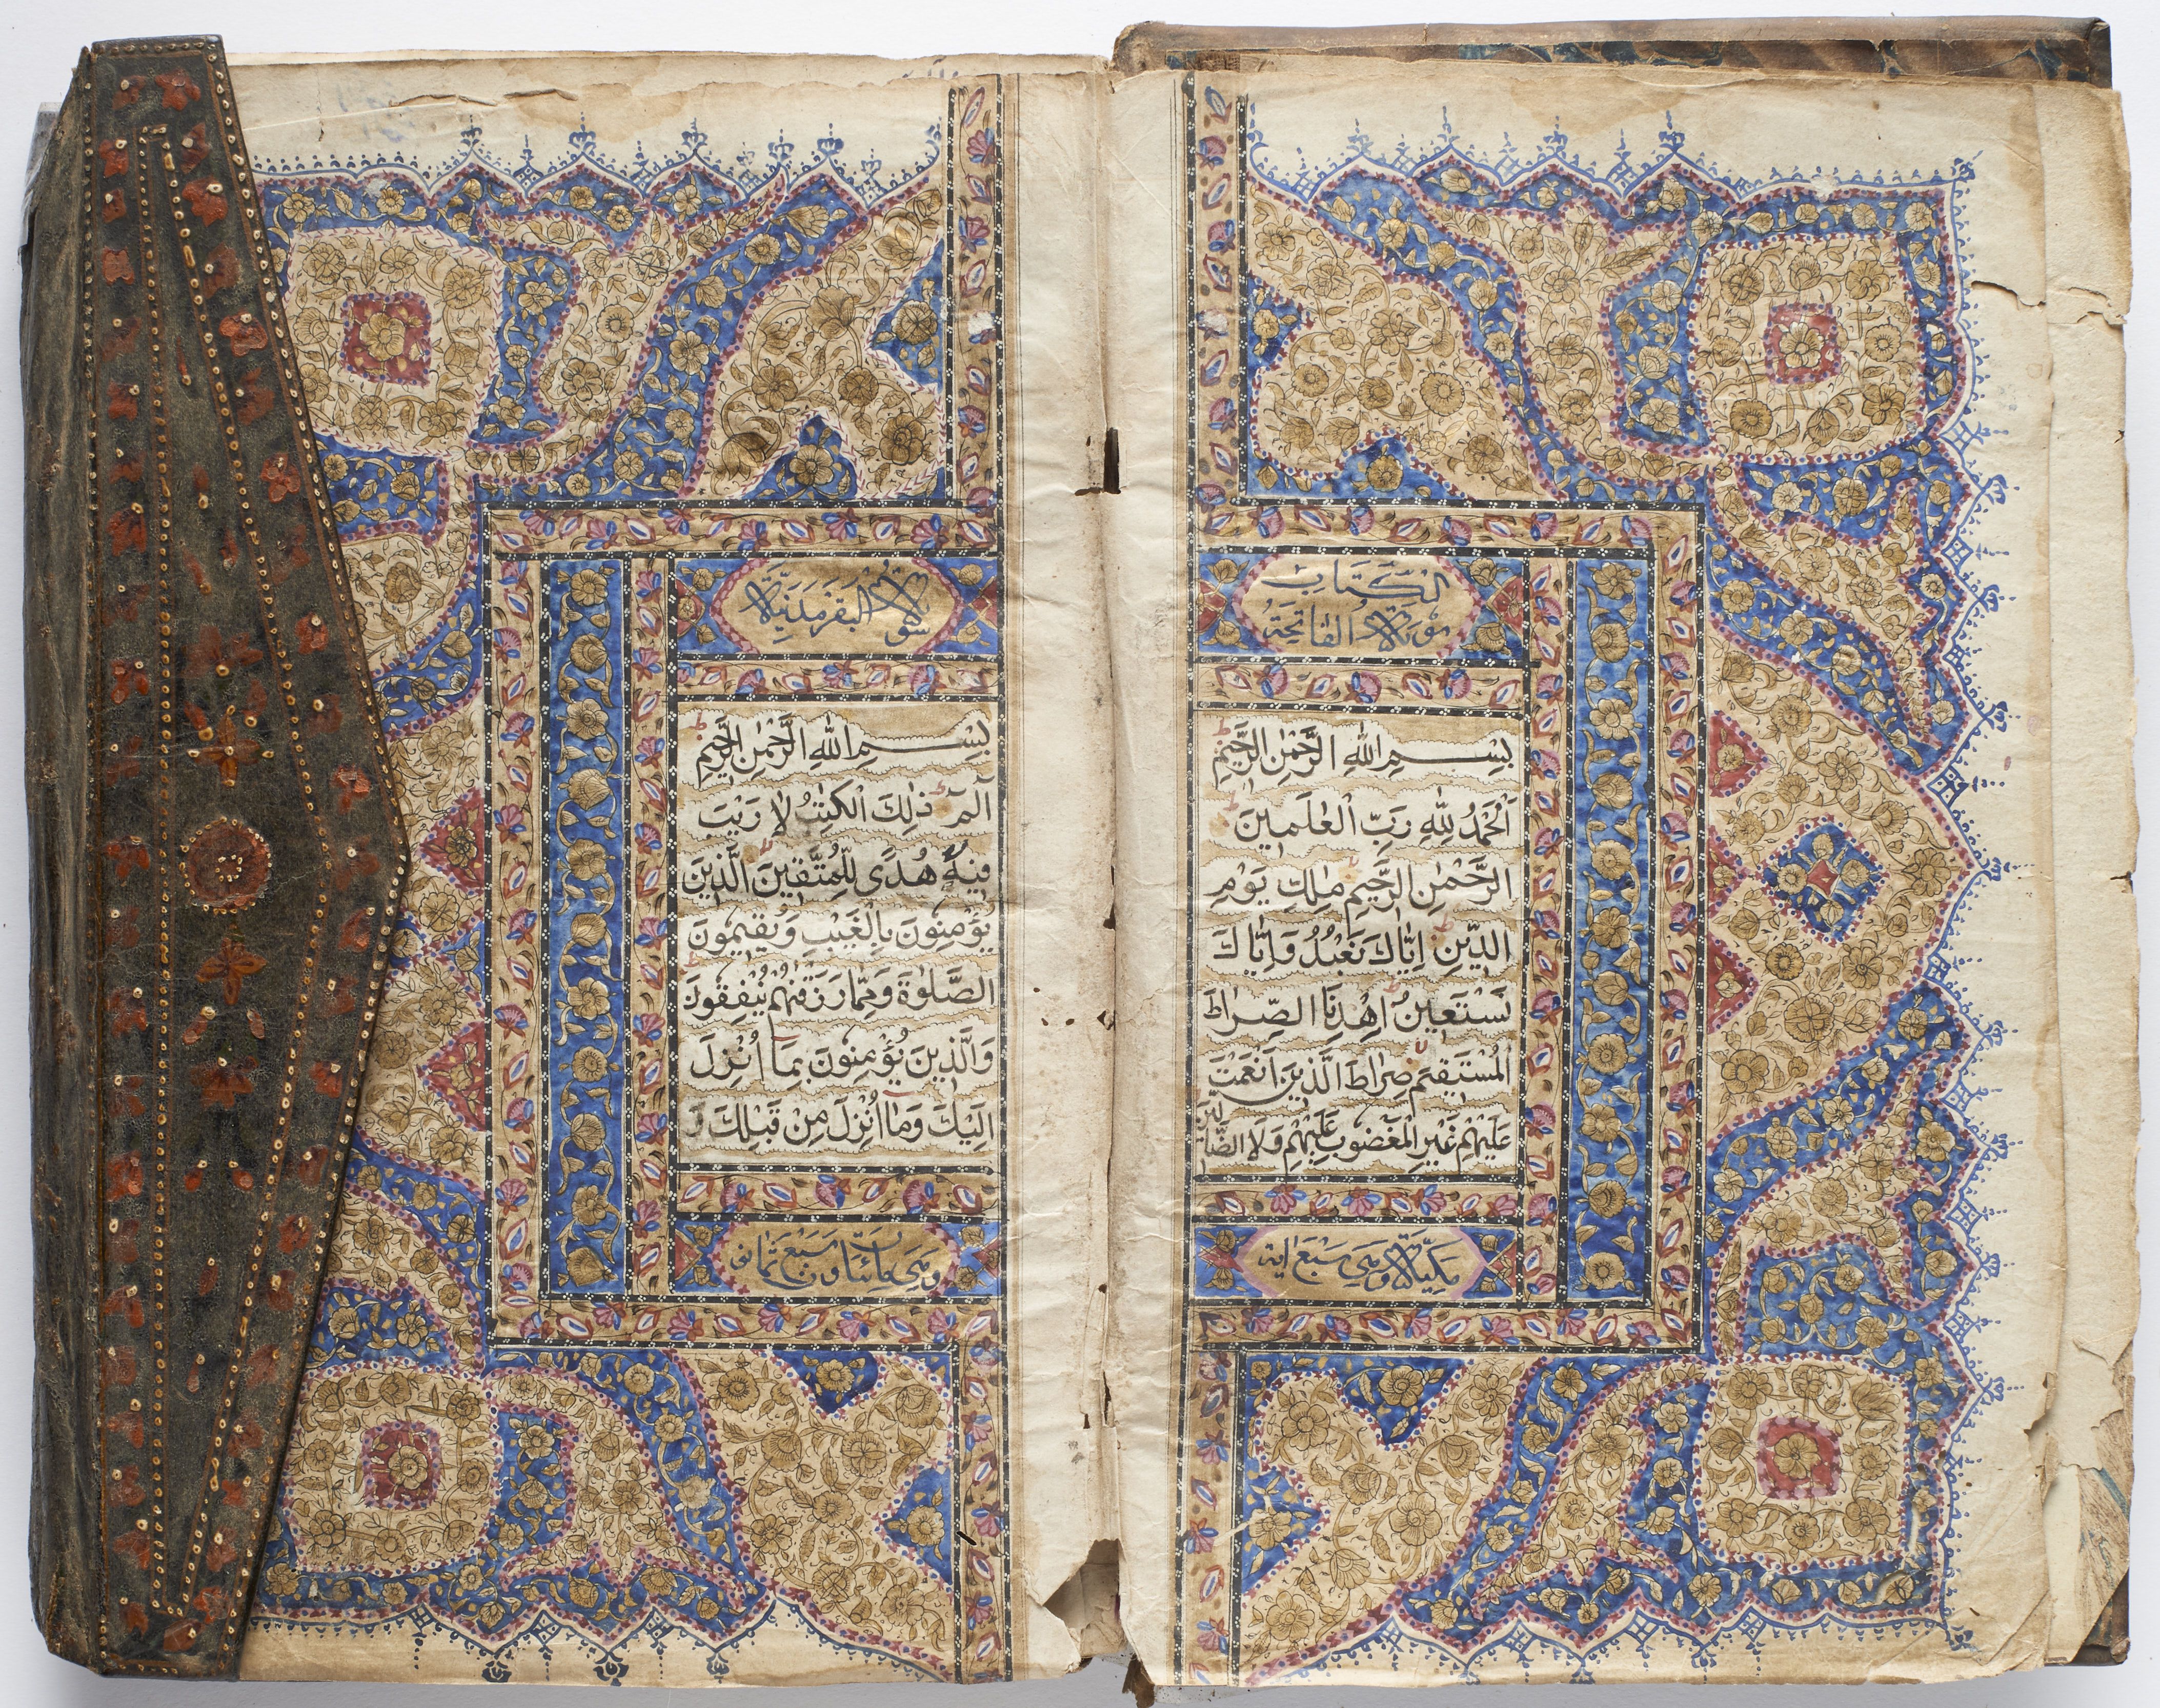 الكتاب
سورة الفاتحة
بِسْمِ اللهِ الرَّحْمٰنِ الرَّحِيْمِ
اَلْحَمْدُ لِلّٰهِ رَبِّ الْعٰلَمِيْنَ
الرَّحْمٰنِ الرَّحِيْمِ مٰلِكِ يَوْمِ
الدِّيْنِ اِيَّاكَ نَعْبُدُ وَاِيَّاكَ
نَسْتَعِيْنُ اِهْدِنَا الصِّرَاطَ
الْمُسْتَقِيْمَ صِرَاطَ الَّذِيْنَ اَنْعَمْتَ
عَلَيْهِمْ غَيْرِ الْمَغْضُوْبِ عَلَيْهِمْ وَلَا الضَّالِّيْنَ
مكية وهي سبع اية
سورة البقرة مدنية
بِسْمِ اللهِ الرَّحْمٰنِ الرَّحِيْمِ
الٓمّٓ ذٰلِكَ الْكِتٰبُ لَا رَيْبَ
فِيْهِ هُدًى لِّلْمُتَّقِيْنَ الَّذِيْنَ
يُؤْمِنُوْنَ بِالْغَيْبِ وَيُقِيْمُوْنَ
الصَّلٰوةَ وَمِمَّا رَزَقْنٰهُمْ يُنْفِقُوْنَ
وَالَّذِيْنَ يُؤْمِنُوْنَ بِمَآ اُنْزِلَ
اِلَيْكَ وَمَآ اُنْزِلَ مِنْ قَبْلِكَ وَ
وهي مائتا وسبع ثمانون